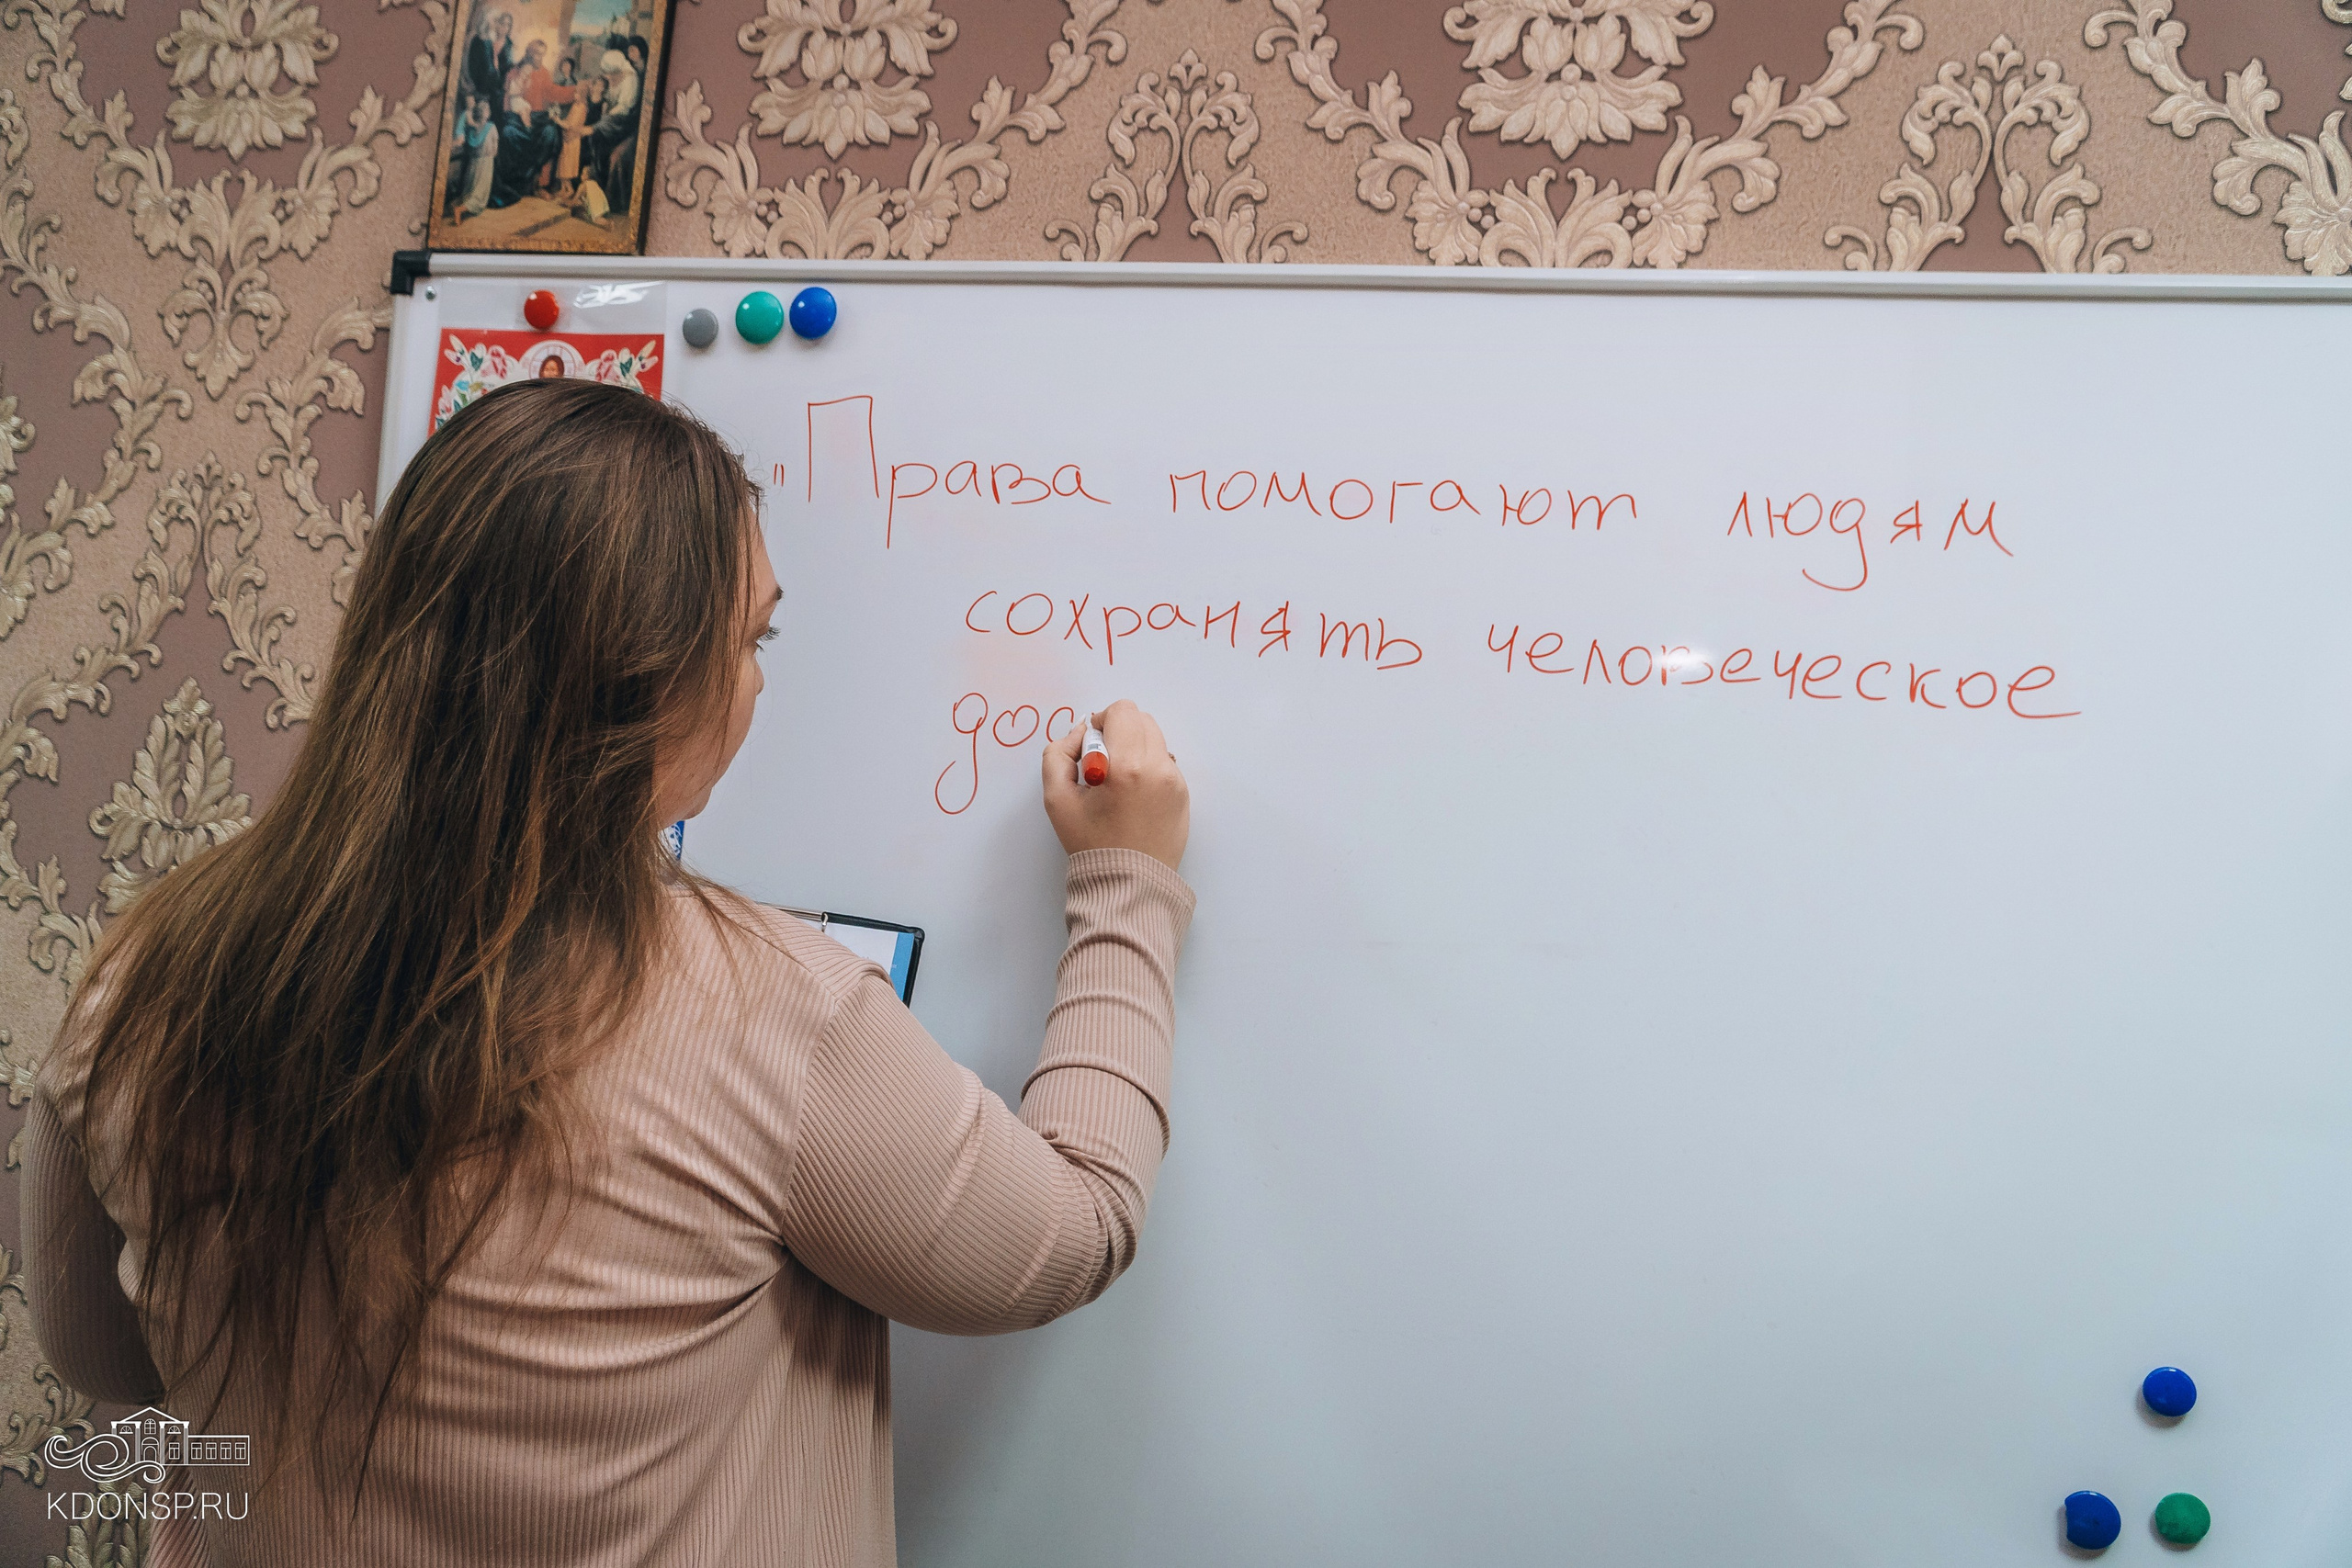 "Права помогают людям
сохранять человеческое
дос
KDONSP.RU